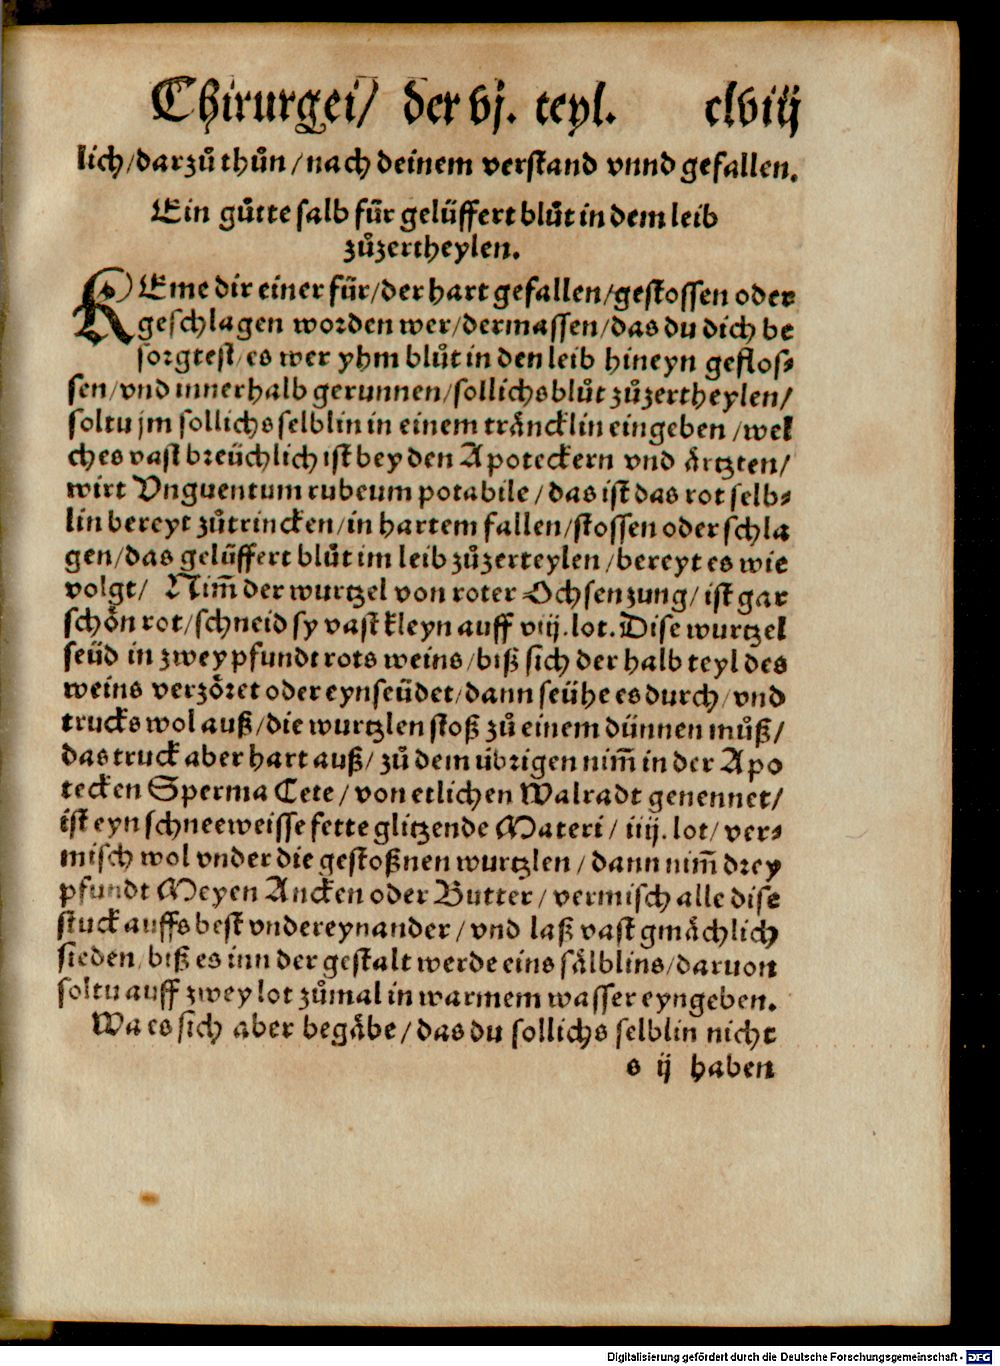 Chirurgei/ der vj. teyl. clviij
lich/darzů thůn/nach deinem verstand vnnd gefallen.
Ein gůtte salb für gelüffert blůt in dem leib
zůzertheylen.
KEme dir einer für/der hart gefallen/gestossen oder
geschlagen worden wer/dermassen/das du dich be
sorgtest/es wer yhm blůt in den leib hineyn geflos⸗
sen/vnd innerhalb gerunnen/sollichs blůt zůzertheylen/
soltu jm sollichs selblin in einem träncklin eingeben/wel
ches vast breüchlich ist bey den Apoteckern vnd ärtzten/
wirt Vnguentum rubeum potabile/das ist das rot selb⸗
lin bereyt zůtrincken/in hartem fallen/stossen oder schla
gen/das gelüffert blůt im leib zůzerteylen/bereyt es wie
volgt/ Nim̄ der wurtzel von roter Ochsenzung/ist gar
schön rot/schneid sy vast kleyn auff viij.lot. Dise wurtzel
seüd in zwey pfundt rots weins/biß sich der halb teyl des
weins verzöret oder eynseüdet/dann seühe es durch/vnd
trucks wol auß/die wurtzlen stoß zů einem dünnen můß/
das truck aber hart auß/zů dem übrigen nim̄ in der Apo
tecken Sperma Cete/von etlichen Walradt genennet/
ist eyn schneeweisse fette glitzende Materi/iiij.lot/ver⸗
misch wol vnder die gestoßnen wurtzlen/dann nim̄ drey
pfundt Meyen Ancken oder Butter/vermisch alle dise
stuck auffs best vndereynander/vnd laß vast gmächlich
sieden/biß es inn der gestalt werde eins sälblins/daruon
soltu auff zwey lot zůmal in warmem wasser eyngeben.
Wa es sich aber begäbe/das du sollichs selblin nicht
s ij haben
Digitalisierung gefördert durch die Deutsche Forschungsgemeinschaft - DFG